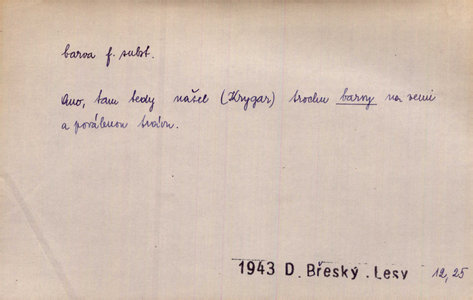 barva f. subst.
Ano, tam tedy našel (Krygar) trochu barvy na zemi
a poválenou trávu.
1943 D. Břeský. Lesy 12, 25